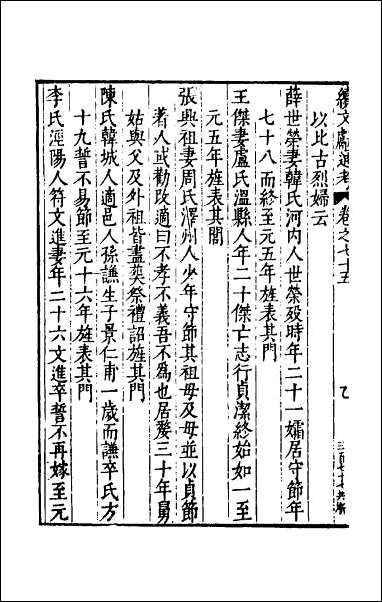 續文獻通考 卷之七十五
以比古烈婦云
薛世榮妻韓氏河內人世榮歿時年二十一孀居守節年
七十八而終至元五年旌表其門
王傑妻盧氏溫縣人年二十傑亡志行貞潔終始如一至
元五年旌表其閭
張興祖妻周氏澤州人少年守節其祖母及母並以貞節
著人或勸改適曰不孝不義吾不為也居嫠三十年舅
姑與父及外祖皆盡葬祭禮詔旌其門
陳氏韓城人適邑人孫謙生子景仁甫一歲而謙卒氏方
十九誓不易節至元十六年旌表其門
李氏涇陽人符文進妻年二十六文進卒誓不再嫁至元